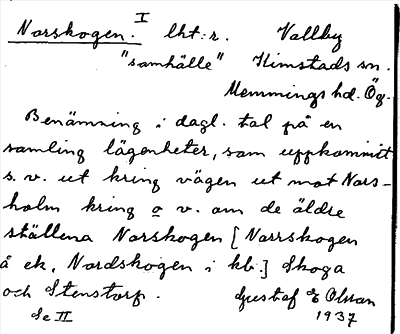 Norskogen. I lht:r. Vallby
"samhälle" Kimstads sn.
Memmings hd. Ög.
Benämning i dagl. tal på en
samling lägenheter, som uppkommit
s. v. ut kring vägen ut mot Nors-
holm kring o v. om de äldre
ställena Norskogen [Norrskogen
å ek, Nordskogen i kb.] Skoga
och Stenstorp. Gustaf E Olsson
Se II 1937